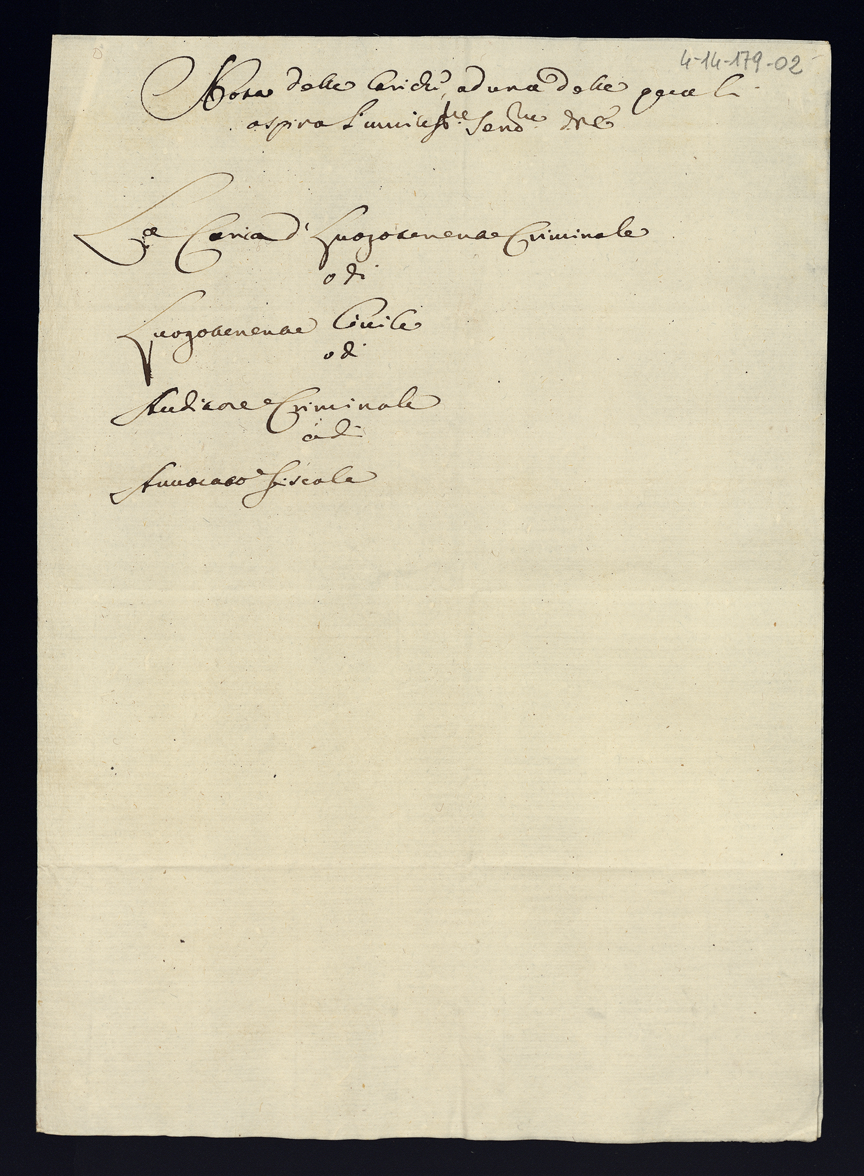 4-14-179-02
Nota delle Cariche, ad una delle quali
aspira l'umiliss.mo Serv.re
La Carica d' Luogotenente Criminale
o di
Luogotenente Civile
o di
Auditore Criminale
o di
Avvocato Fiscale